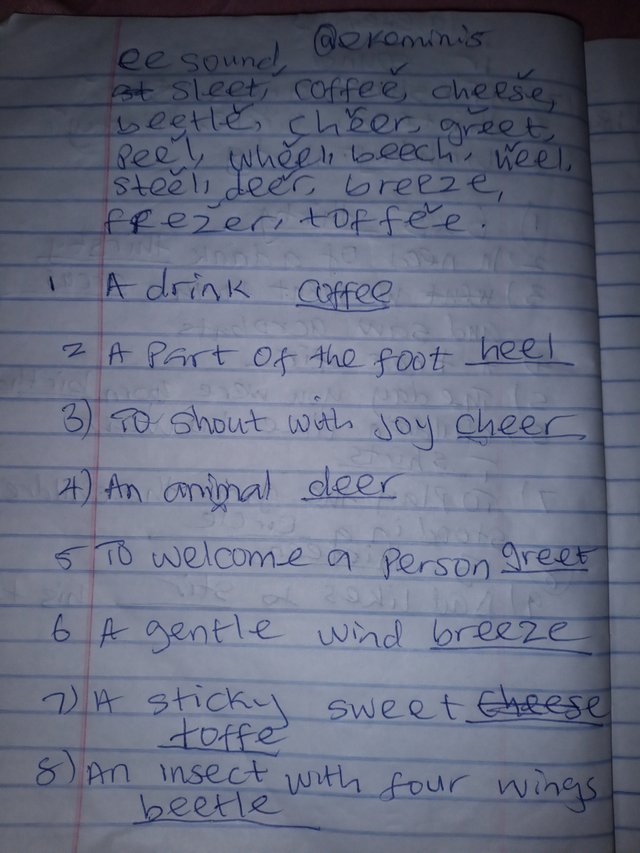 @erominis
ee sound,
st sleet, coffee, cheese,
beetle, cheer, greet,
peel, wheel, beech, heel,
steel, deer, breeze,
frezer, toffee.
1 A drink coffee
2 A Part of the foot heel
3) To shout with joy cheer
4) An animal deer
5 To welcome a person greet
6 A gentle wind breeze
7) A sticky sweet cheese
toffe
8) An insect with four wings
beetle